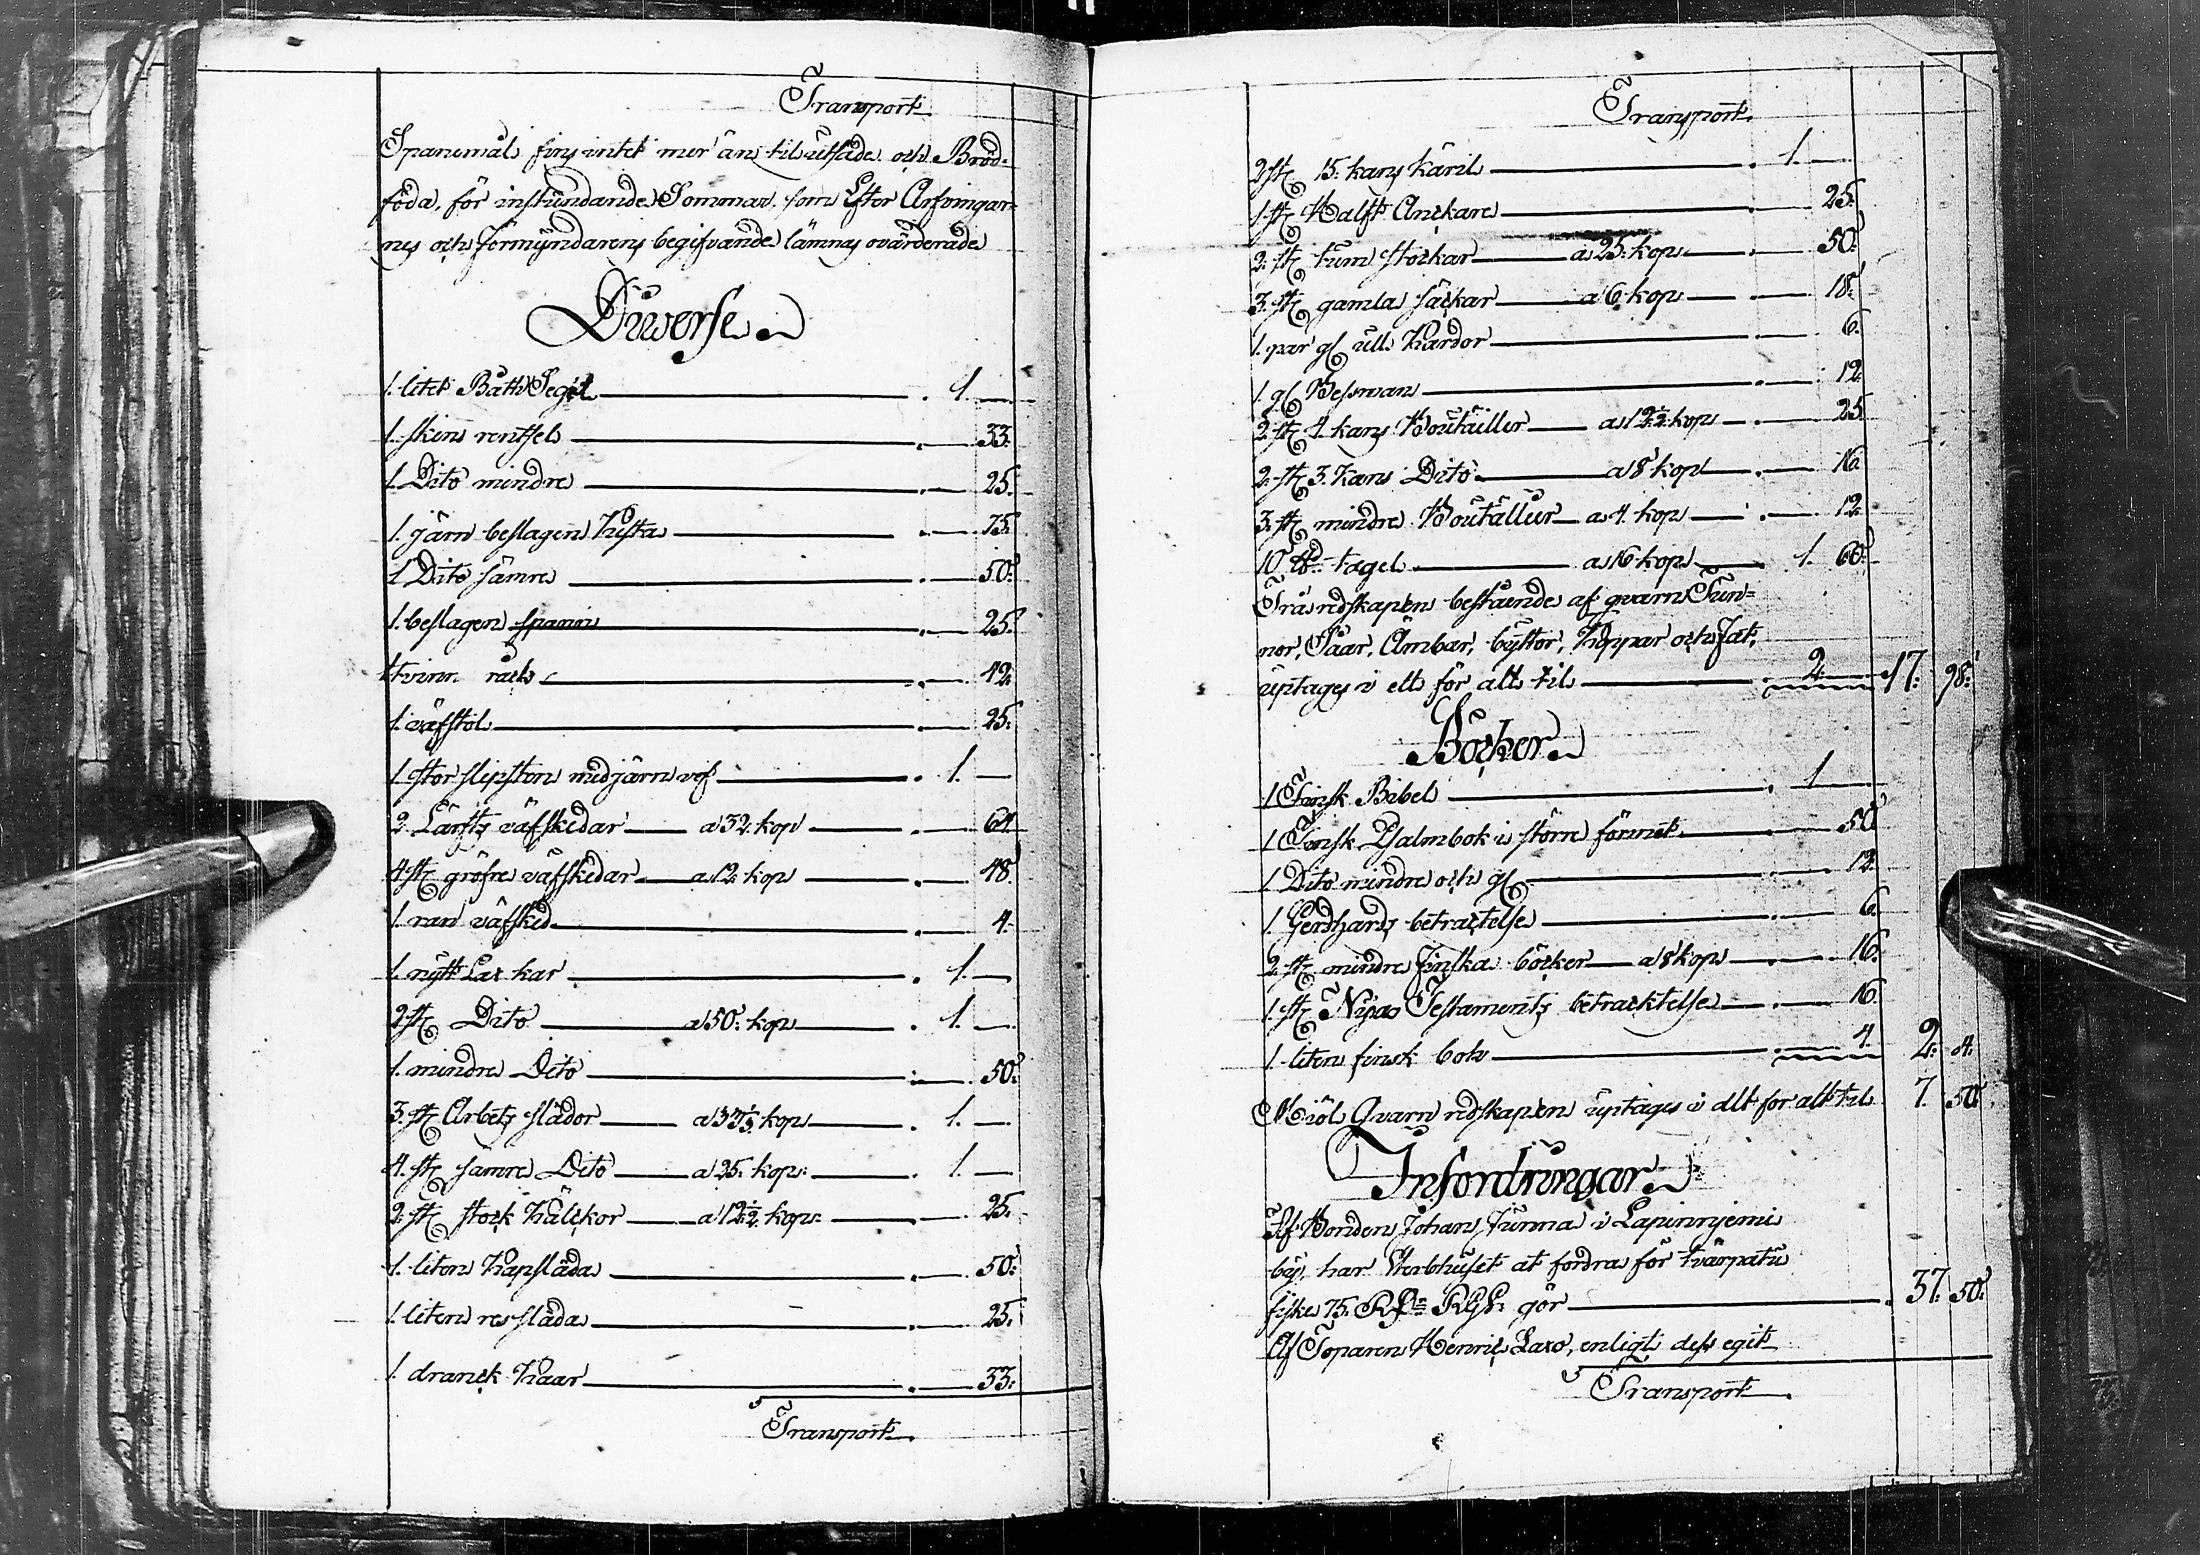 Transport
Spanemål fins intet mer än til utsäde och Bröd-
föda, för instundande Sommar som Efter Arfvingar-
nes och Förmyndarens begifvande lämnas ovärderade
Diverse
1. litet Båth Segel 1. —
1. skin rentsel 33.
1. Dito mindre 25.
1. järn beslagen Kista 75.
1 Dito sämre 50.
1. beslagen spann 25.
1 tvinn råck 42.
1. väfstol 25.
1. stor slipsten med järn vef 1. —
2. Lärftz väfskedar a 32. kop 64
4 st gröfre väfskedar a 12 kop 48.
1. ran väfsked 4.
1. nytt Lax kar 1. —
2 st Dito a 50. kop 1. —
1. mindre Dito 50.
3. st Arbetz slädor a 33⅓ kop 1. —
4. st sämre Dito a 25. kop: 1. —
2. st stock Kälckor a 12½ kop: 25.
1. liten Kapsläda 50.
1. liten res släda 25.
1. dranck Kaar 33.
Transport
Transport
2 st 15. kans käril 1. —
1. st Halft Anckare 25.
2. st tum stockar a 25. kop 50.
3. st gamla säckar a 6 kop 18.
1. par gl ull Kardor 6.
1. gl Besman 12.
2. st 4 kans Boutäiller a 12½ kop 25
2. st 3. kans Dito a 8 kop 16.
3. st mindre Boutäller a 4. kop 12.
10 ℔ tagel a 16 kop 1. 60.
Trä redskapen bestående af qvarn Tun-
nor, Såar, Ämbar, byttor, Koppar och Fat,
uptages i ett för alt til 2. — 17. 98.
Böcker
1 Finsk Bibel 1. —
1 Finsk Psalmbok i större format 50
1 Dito mindre och gl 12.
1. Gerdhards betracktelse 6.
2. st mindre finska böcker a 8 kop 16.
1. st Nya Testamentz betracktelse 16.
1. liten finsk bok 4. 2. 4.
Miöl Qvarn redskapen uptages i alt för alt til 7. 50.
Infordringar
Af Bonden Johan Junna i Lapinnjemi
by, har Sterbhuset at fordra för tvärpatu
fiske 75. Rd RGS: gör 37. 50.
Af Toparen Henric Laxo, enligt dess egit
Transport